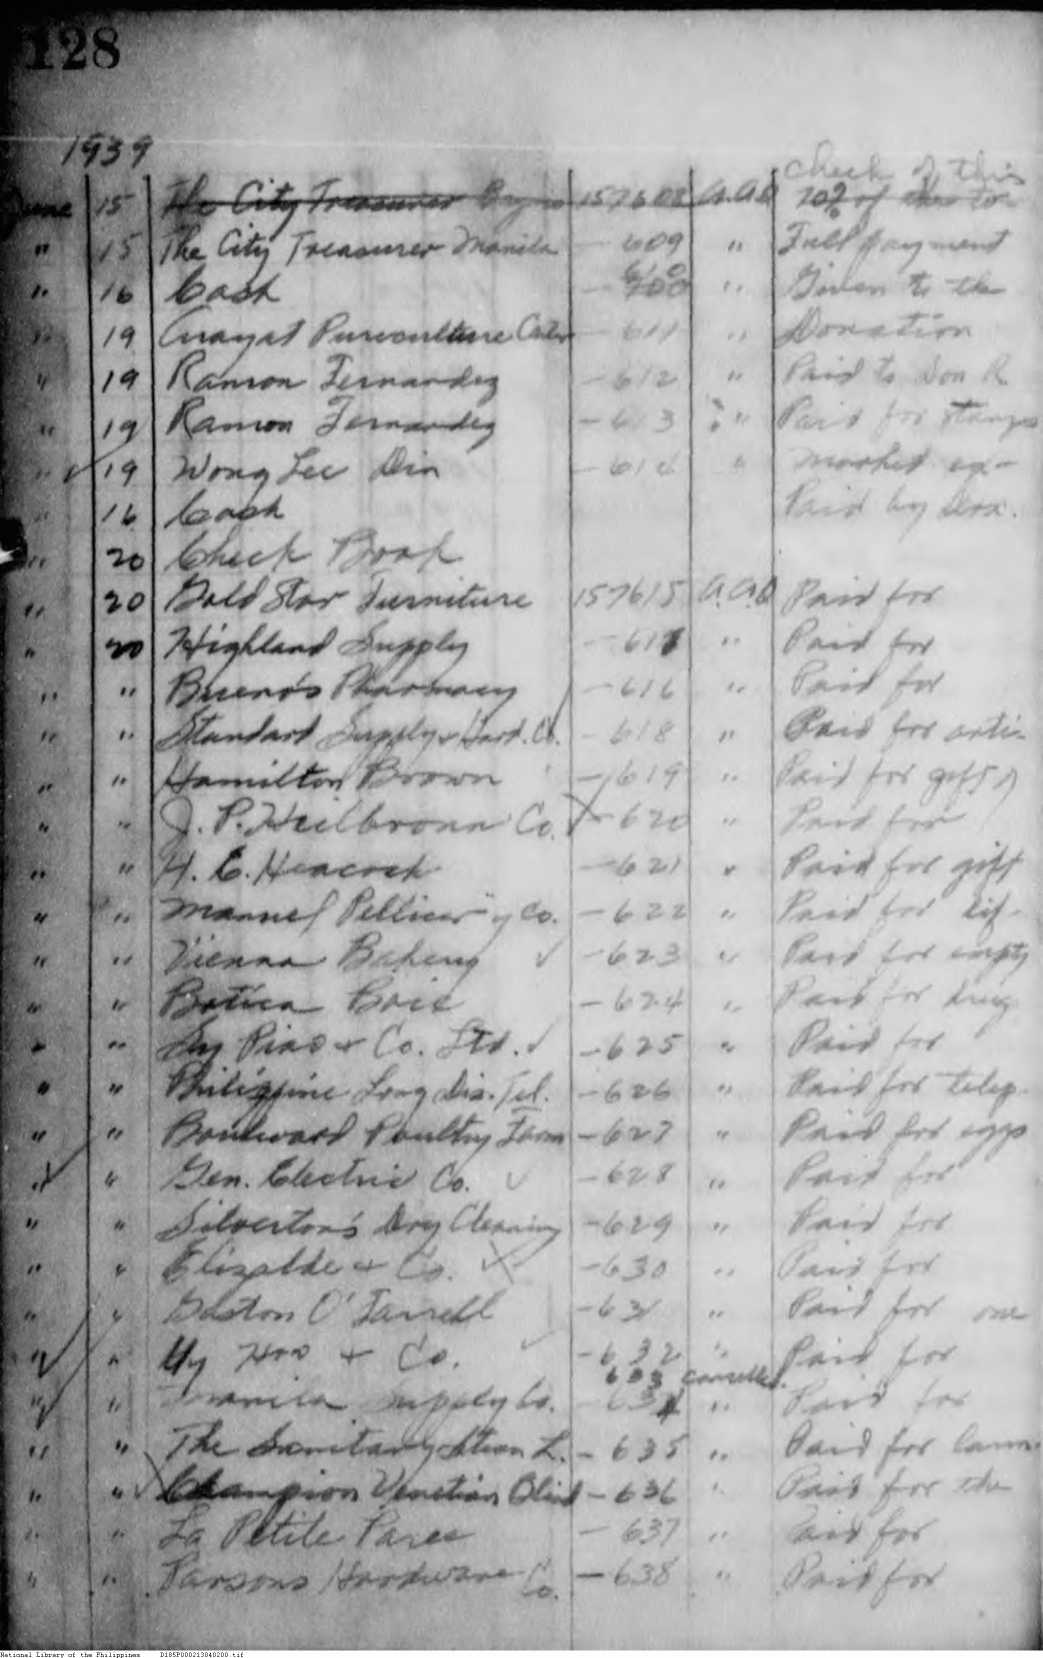 128
1939
check of this
June 15 The City Treasurer 157608 A.A.Q 70% of this to
" 15 The City Treasurer Manila - 609 " Full payment
610
" 16 Cash - 700 " Given to the
" 19 Puericulture - 611 " Donation
" 19 Ramon Fernandez - 612 " Paid to Don R
" 19 Ramon Fernandez - 613 " Paid for stamps
" 19 Wong Lee Din - 614 " market ex-
" 16 Cash Paid by
" 20 Check Book
" 20 Gold Star Furniture 157615 A.A.Q Paid for
" 20 Highland Supply - 617 " Paid for
" " Bueno's Pharmacy - 616 " Paid for
" " Standard Supply & Hard. Co. - 618 " Paid for arti-
" " Hamilton Brown - 619 " Paid for gifts
" " J. P. Heilbronn Co. - 620 " Paid for
" " H. E. Heacock - 621 " Paid for gift
" " Manuel Pellicer y Co. - 622 " Paid for dif-
" " Vienna Bakery - 623 " Paid for empty
" " Botica Boie - 624 " Paid for drug
" " Sy Piao & Co. Ltd. - 625 " Paid for
" " Philippine Long Dis. Tel. - 626 " Paid for telep.
" " Boulevard Poultry Farm - 627 " Paid for eggs
" " Gen. Electric Co. - 628 " Paid for
" " Silverton's Dry Cleaning - 629 " Paid for
" " Elizalde & Co. - 630 " Paid for
" " Gaston O'Farrell - 631 " Paid for one
" " Uy Hoo & Co. - 632 " Paid for
633 cancelled.
" " Manila Supply Co. - 634 " Paid for
" " The Sanitary Steam L. - 635 " Paid for laun-
" " Champion Venetian Blind - 636 " Paid for the
" " La Petite Paree - 637 " Paid for
" " Parsons Hardware Co. - 638 " Paid for
National Library of the Philippines D185P000213040200.tif